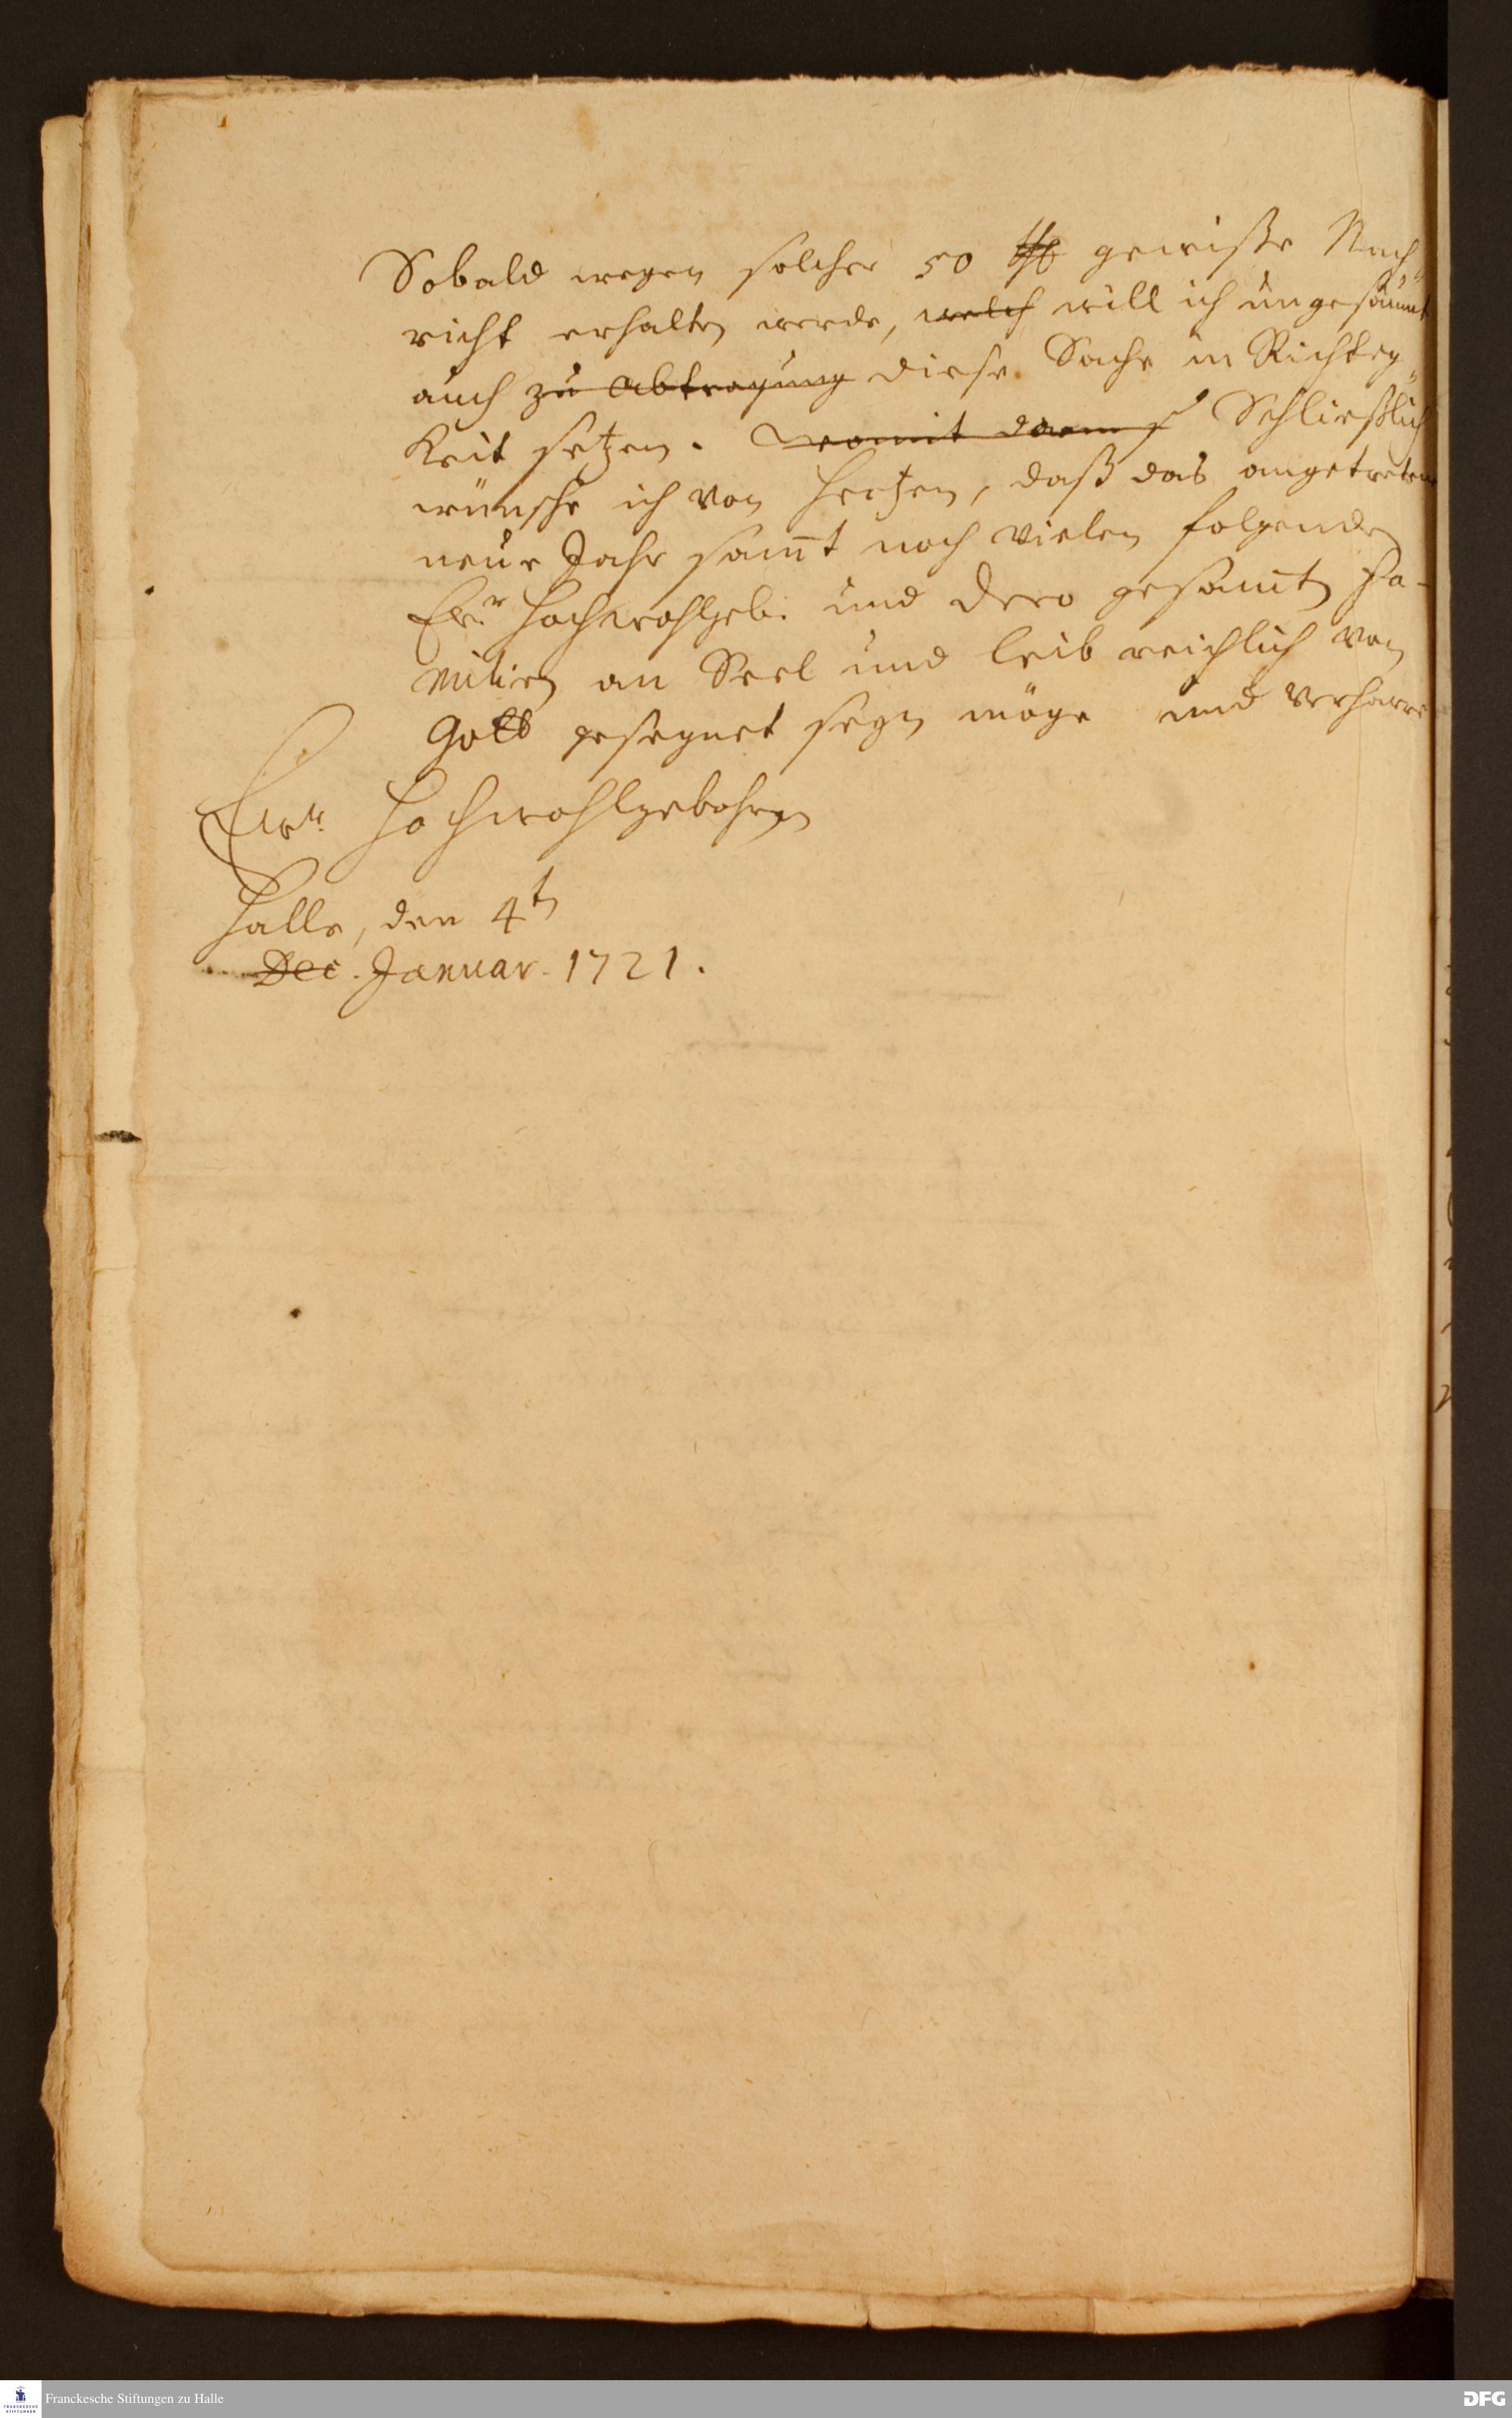 Sobald wegen solcher 50 gewiße Nach„
richt erhalten werde, welch will ich ungesäumt
auch zu Abtragung diese Sache in Richtig„
keit setzen. womit Schließlich
wünsche ich von Hertzen, daß das angetretene
neue Jahr samt noch vielen folgenden
Ew.r Hochwohlgeb. und dero gesamten Fa-
milien an Seel und Leib reichlich von
Gott gesegnet seyn möge und verharre
Ewr. Hochwohlgebohren
Halle, den 4t
Dec. Januar. 1721.
Franckesche Stiftungen zu Halle
FRANCKESCHE
STIFTUNGEN
DFG